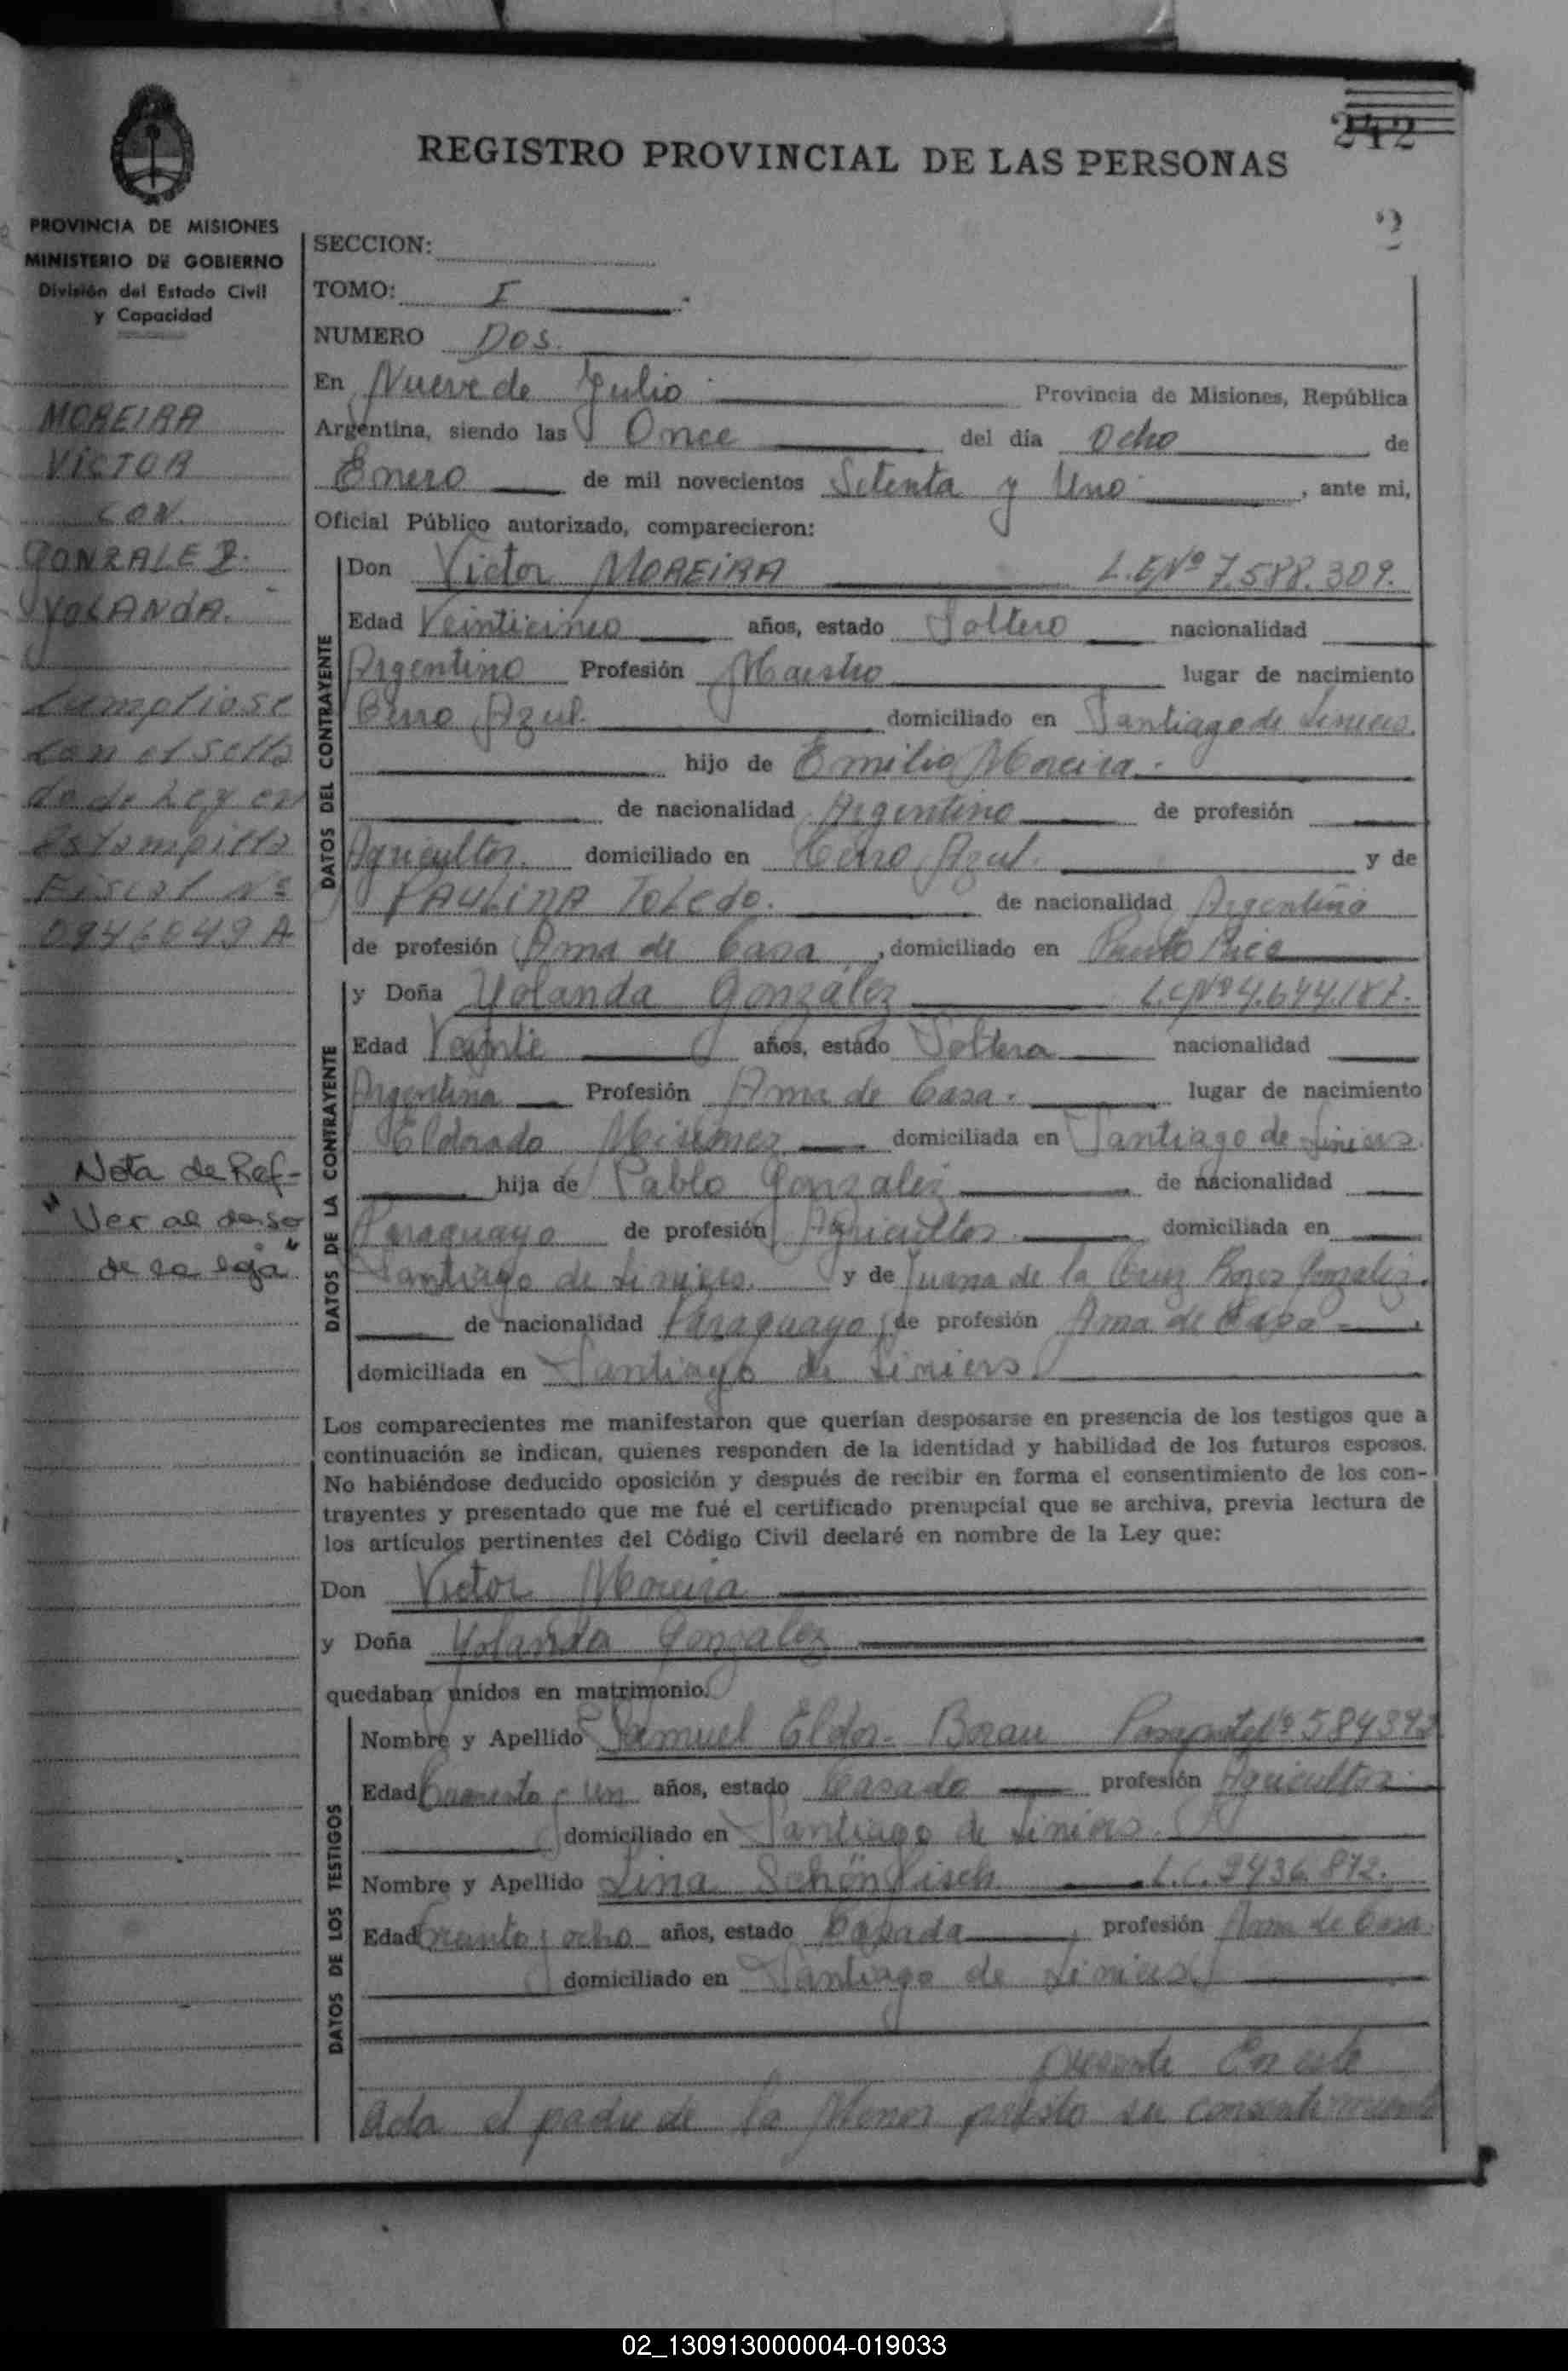 REGISTRO PROVINCIAL DE LAS PERSONAS
242
2
PROVINCIA DE MISIONES
MINISTERIO DE GOBIERNO
División del Estado Civil
y Capacidad
MOREIRA
VICTOR
CON.
GONZALEZ.
YOLANDA.
Cumpliose
con el sella
do de Ley en
estampilla
Fiscal Nº
0946049 A
Nota de Ref-
"Ver al dorso
de la hoja"
SECCION:
TOMO: I
NUMERO Dos.
En Nueve de Julio Provincia de Misiones, República
Argentina, siendo las Once del día Ocho de
Enero de mil novecientos Setenta y Uno , ante mi,
Oficial Público autorizado, comparecieron:
DATOS DEL CONTRAYENTE
Don Victor MOREIRA L.E.Nº 7.588.309.
Edad Veinticinco años, estado Soltero nacionalidad
Argentino Profesión Maestro lugar de nacimiento
Cerro Azul. domiciliado en Santiago de Liniers.
hijo de Emilio Moreira.
de nacionalidad Argentino de profesión
Agricultor. domiciliado en Cerro Azul. y de
PAULINA Toledo. de nacionalidad Argentina
de profesión Ama de Casa , domiciliado en Puerto Rico
DATOS DE LA CONTRAYENTE
y Doña Yolanda Gonzalez L.C.Nº 4.644.187.
Edad Veinte años, estado Soltera nacionalidad
Argentina Profesión Ama de Casa. lugar de nacimiento
Eldorado Misiones domiciliada en Santiago de Liniers.
hija de Pablo Gonzalez de nacionalidad
Paraguayo de profesión Agricultor domiciliada en
Santiago de Liniers. y de Juana de la Cruz Gonzalez.
de nacionalidad Paraguaya , de profesión Ama de Casa
domiciliada en Santiago de Liniers
Los comparecientes me manifestaron que querían desposarse en presencia de los testigos que a
continuación se indican, quienes responden de la identidad y habilidad de los futuros esposos.
No habiéndose deducido oposición y después de recibir en forma el consentimiento de los con-
trayentes y presentado que me fué el certificado prenupcial que se archiva, previa lectura de
los artículos pertinentes del Código Civil declaré en nombre de la Ley que:
Don Victor Moreira
y Doña Yolanda Gonzalez
quedaban unidos en matrimonio.
DATOS DE LOS TESTIGOS
Nombre y Apellido Samuel Eldor Pasaporte Nº 584392
Edad Cuarenta y un años, estado Casado profesión Agricultor
domiciliado en Santiago de Liniers.
Nombre y Apellido Lina Schönfisch L.C. 2436.872.
Edad treinta y ocho años, estado Casada , profesión Ama de Casa.
domiciliado en Santiago de Liniers
presente En este
acta el padre de la Menor presto su consentimiento
02_130913000004-019033